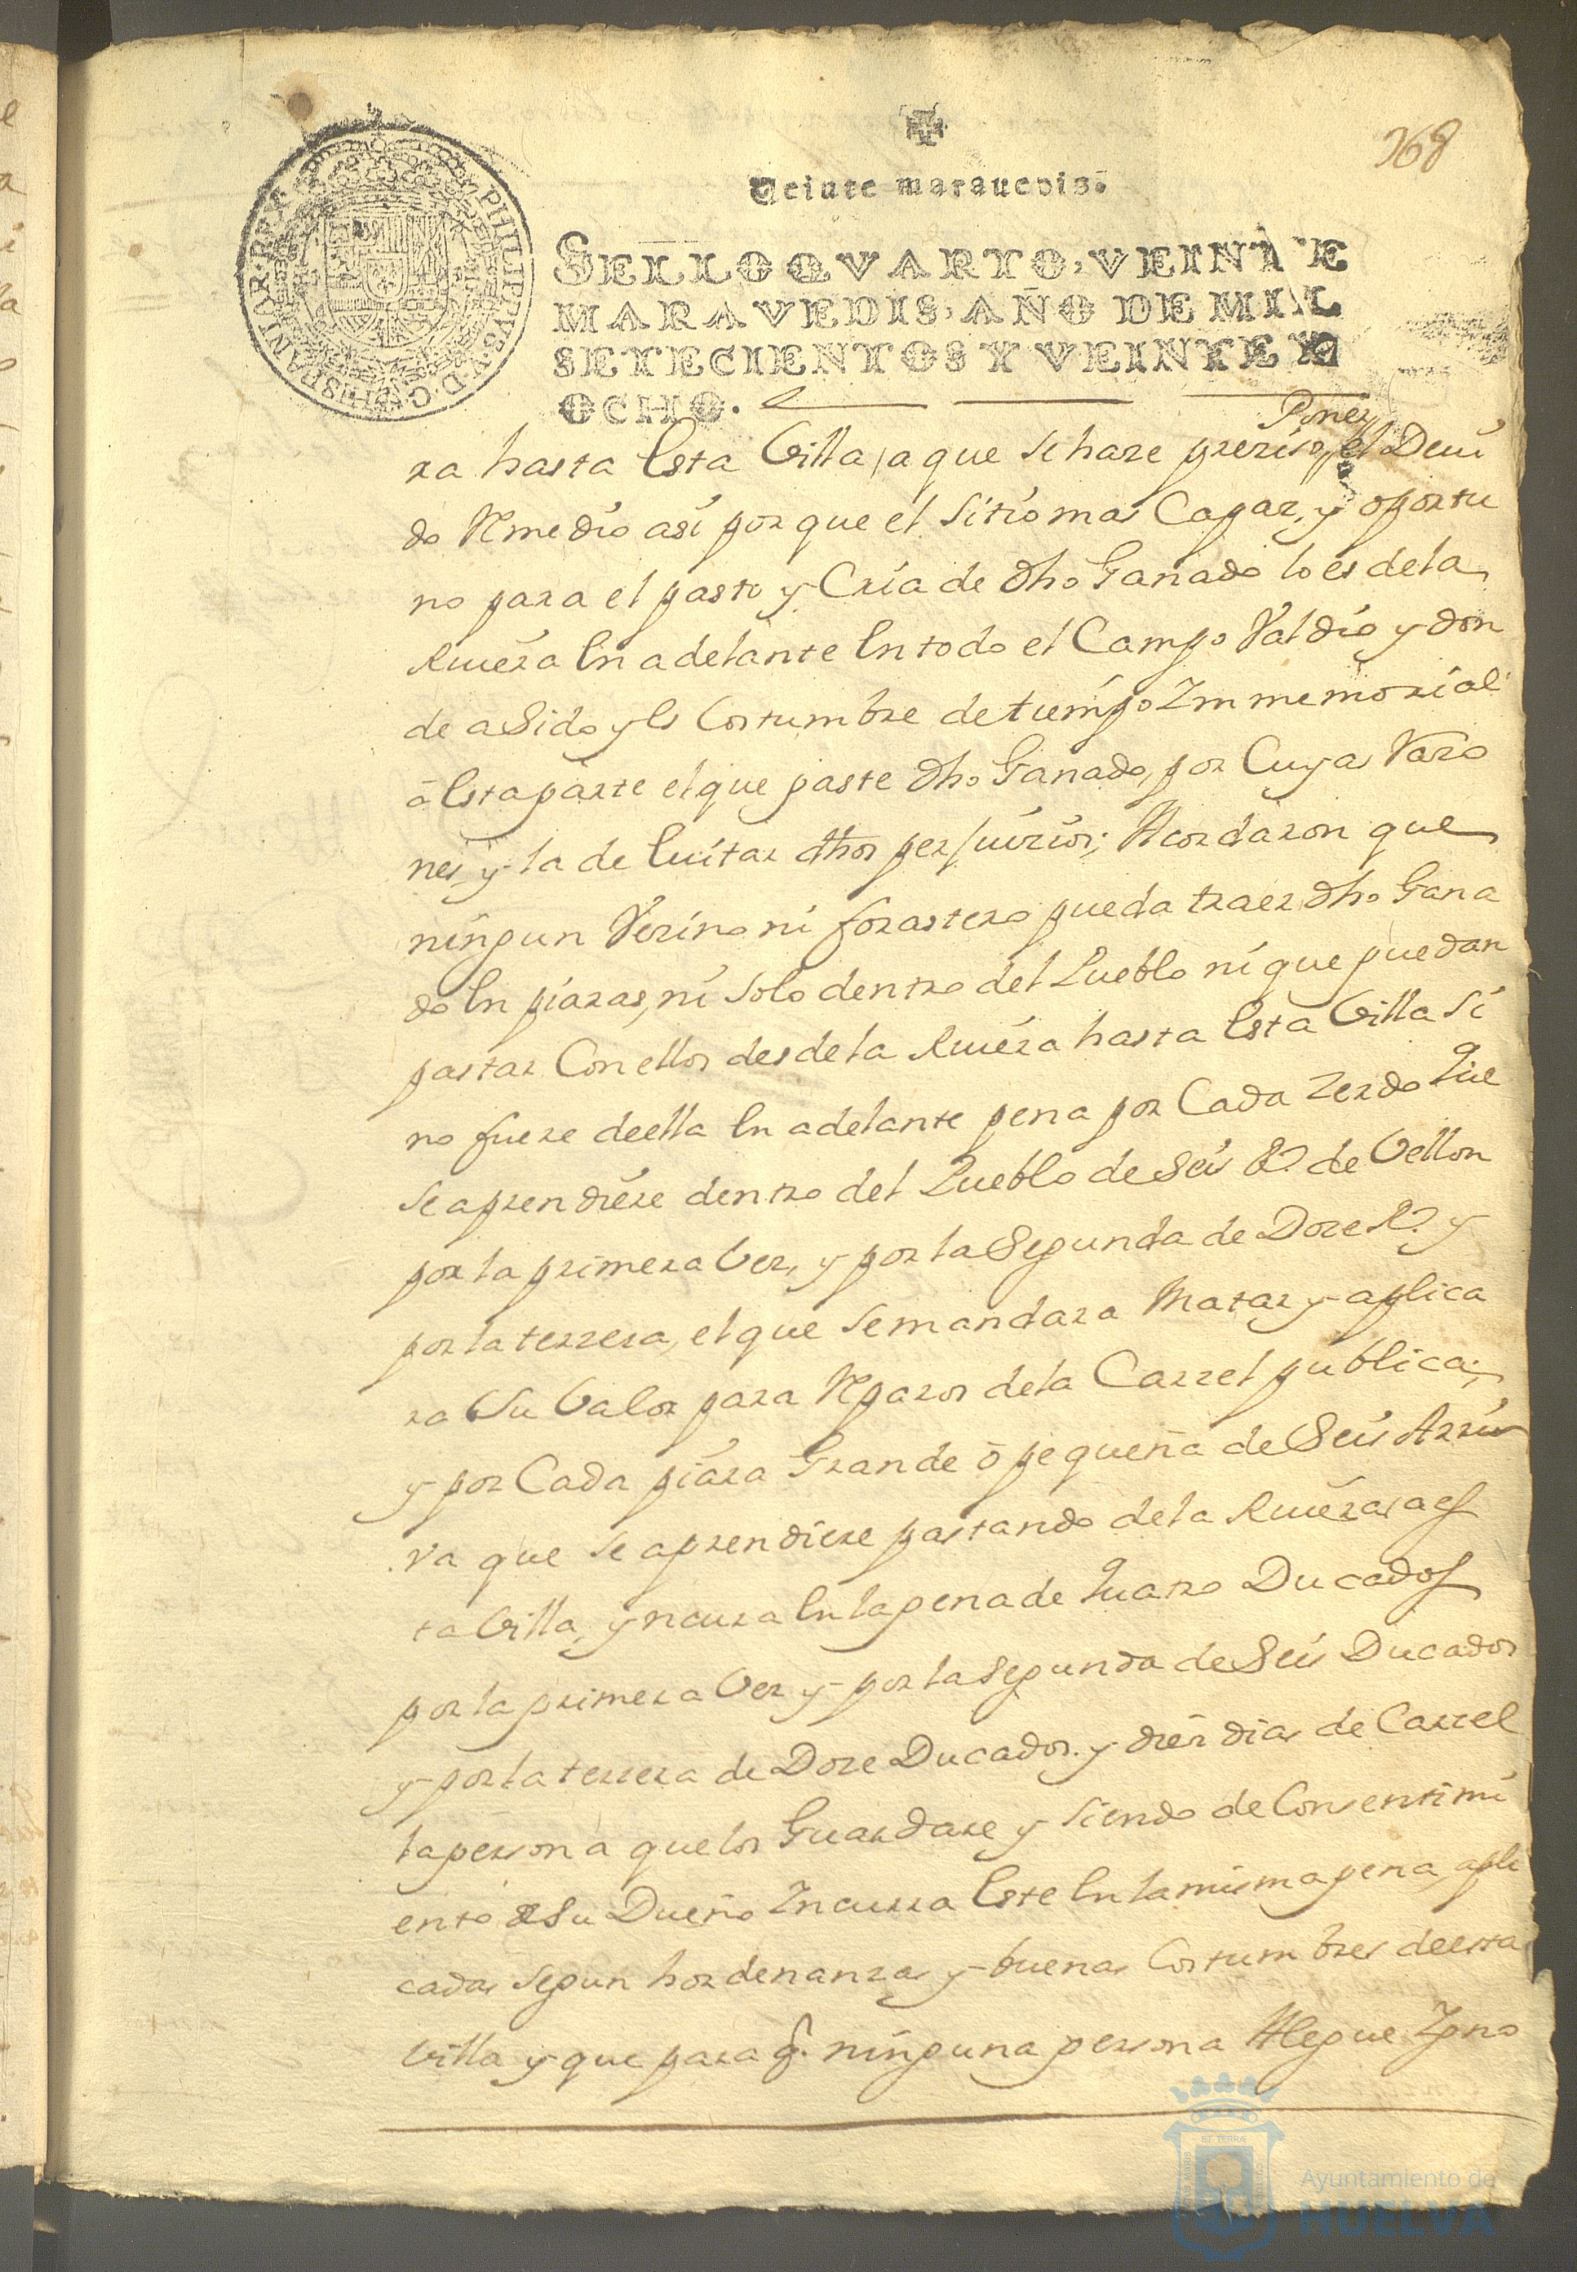 368
Veinte marauedis.
SELLO QVARTO, VEINTE
MARAVEDIS, AÑO DE MIL
SETECIENTOS Y VEINTE Y
OCHO.
PHILIPPVS V D G HISPANIAR REX
Poner
ra hasta Esta Villa, a que se haze prezisso, el Deui
do Remedio asi porque el sitio mas Capaz, y oportu
no para el pasto y Cria de dho Ganado lo es de la
Riuera En adelante En todo el Campo Valdio y don
de a Sido y Es Costumbre de tiempo Immemorial
â Esta parte el que paste dho Ganado, por Cuyas Razo
nes y la de Euitar dhos perjuizios; Acordaron que
ningun Vezino ni forastero pueda traer dho Gana
do En piaras, ni solo dentro del Pueblo ni que puedan
pastar Con ellos desde la Riuera hasta Esta Villa Si
no fuere de ella En adelante pena por Cada Zerdo Que
se aprendiere dentro del Pueblo de Seis Rs de Vellon
por la primera Vez, y por la Segunda de Doze Rs y
por la terzera, el que se mandara Matar y aplica
ra Su Valor para Reparos de la Carzel publica;
y por Cada piara Grande ô pequeña de Seis Arri
va que se aprendiere pastando de la Riuera a es
ta Villa, yncurra En la pena de Quatro Ducados
por la primera Vez y por la Segunda de Seis Ducados
y por la terzera de Doze Ducados. y diez dias de Carzel
la persona que los Guardare y siendo de Consentimi
ento de Su Dueño Incurra Este En la misma pena, apli
cadas segun hordenanzas y buenas Costumbres de esta
Villa y que para q. ninguna persona Alegue Igno
Ayuntamiento de
HUELVA